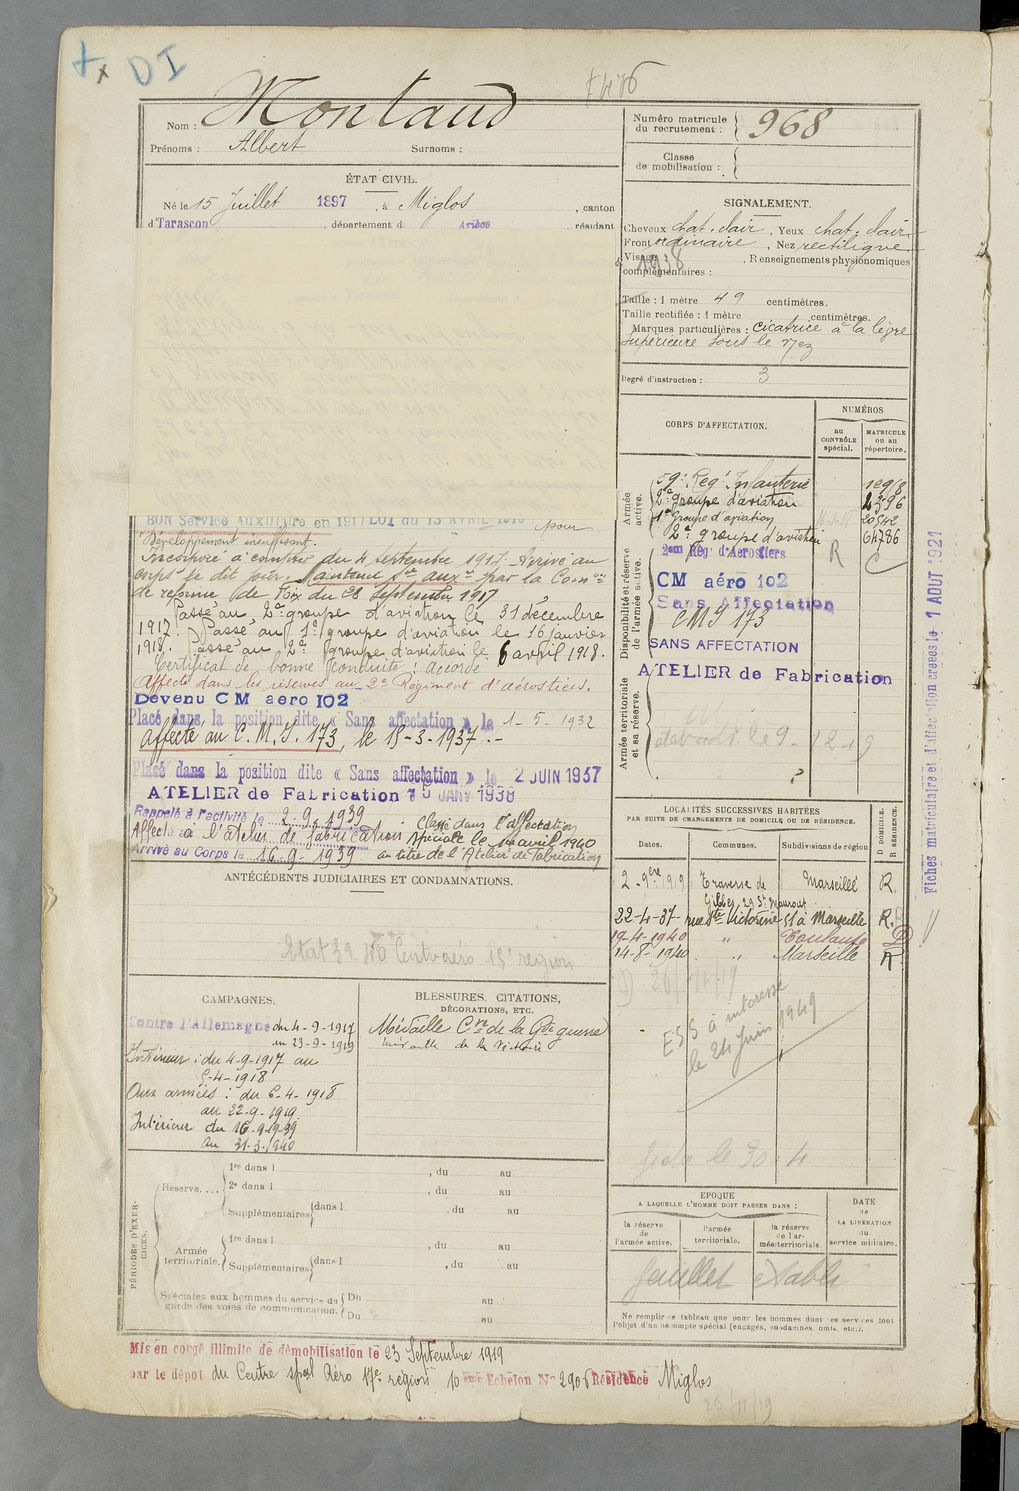 DI
Nom : Montaud
Prénoms : Albert Surnoms :
ÉTAT CIVIL.
Né le 15 Juillet 1897, à Miglos, canton
d Tarascon, département d Ariège, résidant
BON Service Auxiliaire en 1917 LOI du pour
Développement insuffisant.
Incorporé à compter du 4 septembre 1917. Arrivé au
corps le dit jour. Maintenu sce auxre par la Comon
de réforme de Foix du septembre 1917
Passé au 2e groupe d'aviation le 31 décembre
1917. Passé au 1er groupe d'aviation le 16 janvier
1918. Passé au 2e groupe d'aviation le 6 avril 1918.
Certificat de bonne conduite : accordé
Affecté dans les réserves au 2e Régiment d'aérostiers.
Devenu CM aero 102
Placé dans la position dite « Sans affectation » le 1-5-1932
Affecté au C.M.I. 173, le 18-3-1937.-
Placé dans la position dite « Sans affectation » le 2 JUIN 1937
ATELIER de Fabrication 15 JANV 1938
Rappelé à l'activité le 2-9-1939
Affecté à l'atelier de fabrication
Arrivé au Corps le 16-9-1939
Classé dans l'affectation
spéciale le 1er avril 1940
au titre de l'Atelier de Fabrication
ANTÉCÉDENTS JUDICIAIRES ET CONDAMNATIONS.
CAMPAGNES.
Contre l'Allemagne du 4-9-1917
au 23-9-1919
Intérieur : du 4-9-1917 au
5-4-1918
Aux armées : du 6-4-1918
au 22-9-1919
Intérieur du 16-9-1939
au 31-3-1940
BLESSURES, CITATIONS,
DÉCORATIONS, ETC.
Médaille Cve de la Gde guerre
médaille de la victoire
PÉRIODES D'EXERCICES.
Réserve....
1re dans l , du au
2e dans l , du au
Supplémentaires dans l , du au
Armée
territoriale.
1re dans l , du au
Supplémentaires dans l , du au
Spéciales aux hommes du service de
garde des voies de communication.
Du au
Du au
Mis en congé illimité de démobilisation le 23 Septembre 1919
par le dépôt du Centre spal Aéro 17e région 10 eme Echelon No 2906 Résidence Miglos
Numéro matricule
du recrutement : 968
Classe
de mobilisation :
SIGNALEMENT.
Cheveux chat. clair, Yeux chat. clair
Front ordinaire, Nez rectiligne
Visage , Renseignements physionomiques
complémentaires :
1938
Taille : 1 mètre 49 centimètres.
Taille rectifiée : 1 mètre centimètres.
Marques particulières : cicatrice à la lèvre
supérieure sous le nez
Degré d'instruction : 3
CORPS D'AFFECTATION.
NUMÉROS
au
CONTRÔLE
spécial.
MATRICULE
ou au
répertoire.
Armée
active.
59e Régt Infanterie
2e groupe d'aviation
1er Groupe d'aviation
2e groupe d'aviation
Disponibilité et réserve
de l'armée active.
2eme Rég d'Aérostiers R
CM aéro 102
Sans Affectation
CMI 173
SANS AFFECTATION
ATELIER de Fabrication
Armée territoriale
et sa réserve.
LOCALITÉS SUCCESSIVES HABITÉES
PAR SUITE DE CHANGEMENTS DE DOMICILE OU DE RÉSIDENCE.
D DOMICILE.
R RÉSIDENCE.
Dates. Communes. Subdivisions de région
2-9bre 1919 Traverse de Marseille R.
22-4-37 rue Ste Victorine 51 à Marseille R.
19-4-1940 " Toulouse D
14-8-1940 " Marseille R
ESS à intéressé
le 24 juin 1949
EPOQUE
A LAQUELLE L'HOMME DOIT PASSER DANS :
la réserve
de
l'armée active.
l'armée
territoriale.
la réserve
de l'ar-
mée territoriale.
DATE
de
LA LIBÉRATION
du
service militaire.
feuillet établi
Ne remplir ce tableau que pour les hommes dont les services font
l'objet d'un décompte spécial (engagés, condamnés, omis, etc.).
Fiches matriculaire et d'affectation créées le 1 AOUT 1921